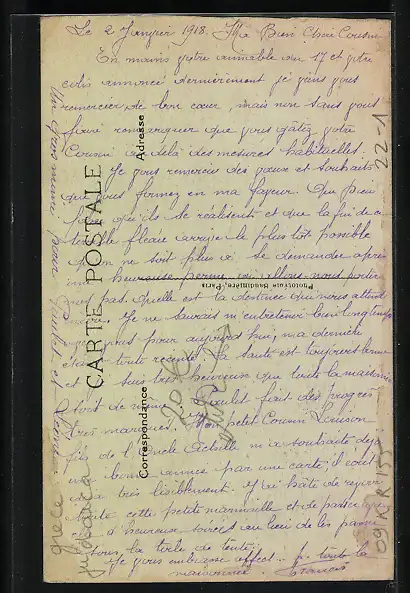 Le 2 Janvier 1918. Ma Bien Chère Cousine
En mains votre aimable du 17 et votre
colis annoncé dernièrement je viens vous
remercier de bon cœur, mais non sans vous
faire remarquer que vous gâtez votre
Cousin au delà des mesures habituelles.
Je vous remercie des vœux et souhaits
que vous formez en ma faveur. Que
qu'ils se réalisent et que la fin de
terrible fléau arrive le plus tôt possible
qu'on ne soit plus à se demander après
une heureuse perme où allons nous porter
nos pas. Quelle est la destinée qui nous attend
encore. Je ne saurais m'entretenir bien longtemps
avec vous pour aujourd'hui, ma dernière
étant toute récente. La santé est toujours bonne
et suis très heureux que toute la maisonnée
soit de même. fait des progrès
très marqués. Mon petit Cousin
fils de l'Oncle Achille m'a souhaité déjà
une bonne année par une carte, il écrit
déjà très lisiblement. J'ai hâte de revoir
toute cette petite marmaille et de
d'heureuse soirées au lieu de les passer
sous la toile de tente.
Je vous embrasse affect. toute la
maisonnée Francis
Un gros mimi pour
CARTE POSTALE
Correspondance
Adresse
Phototypie Baudinière, Paris
22-1
grece